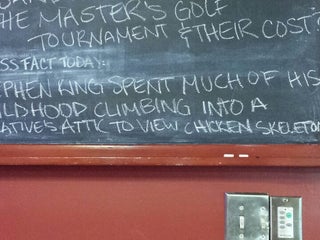 HE MASTER'S GOLF
TOURNAMENT & THEIR COST?
SS FACT TODAY:
PHEN KING SPENT MUCH OF HIS
ILDHOOD CLIMBING INTO A
ATIVE'S ATTIC TO VIEW CHICKEN SKELETON